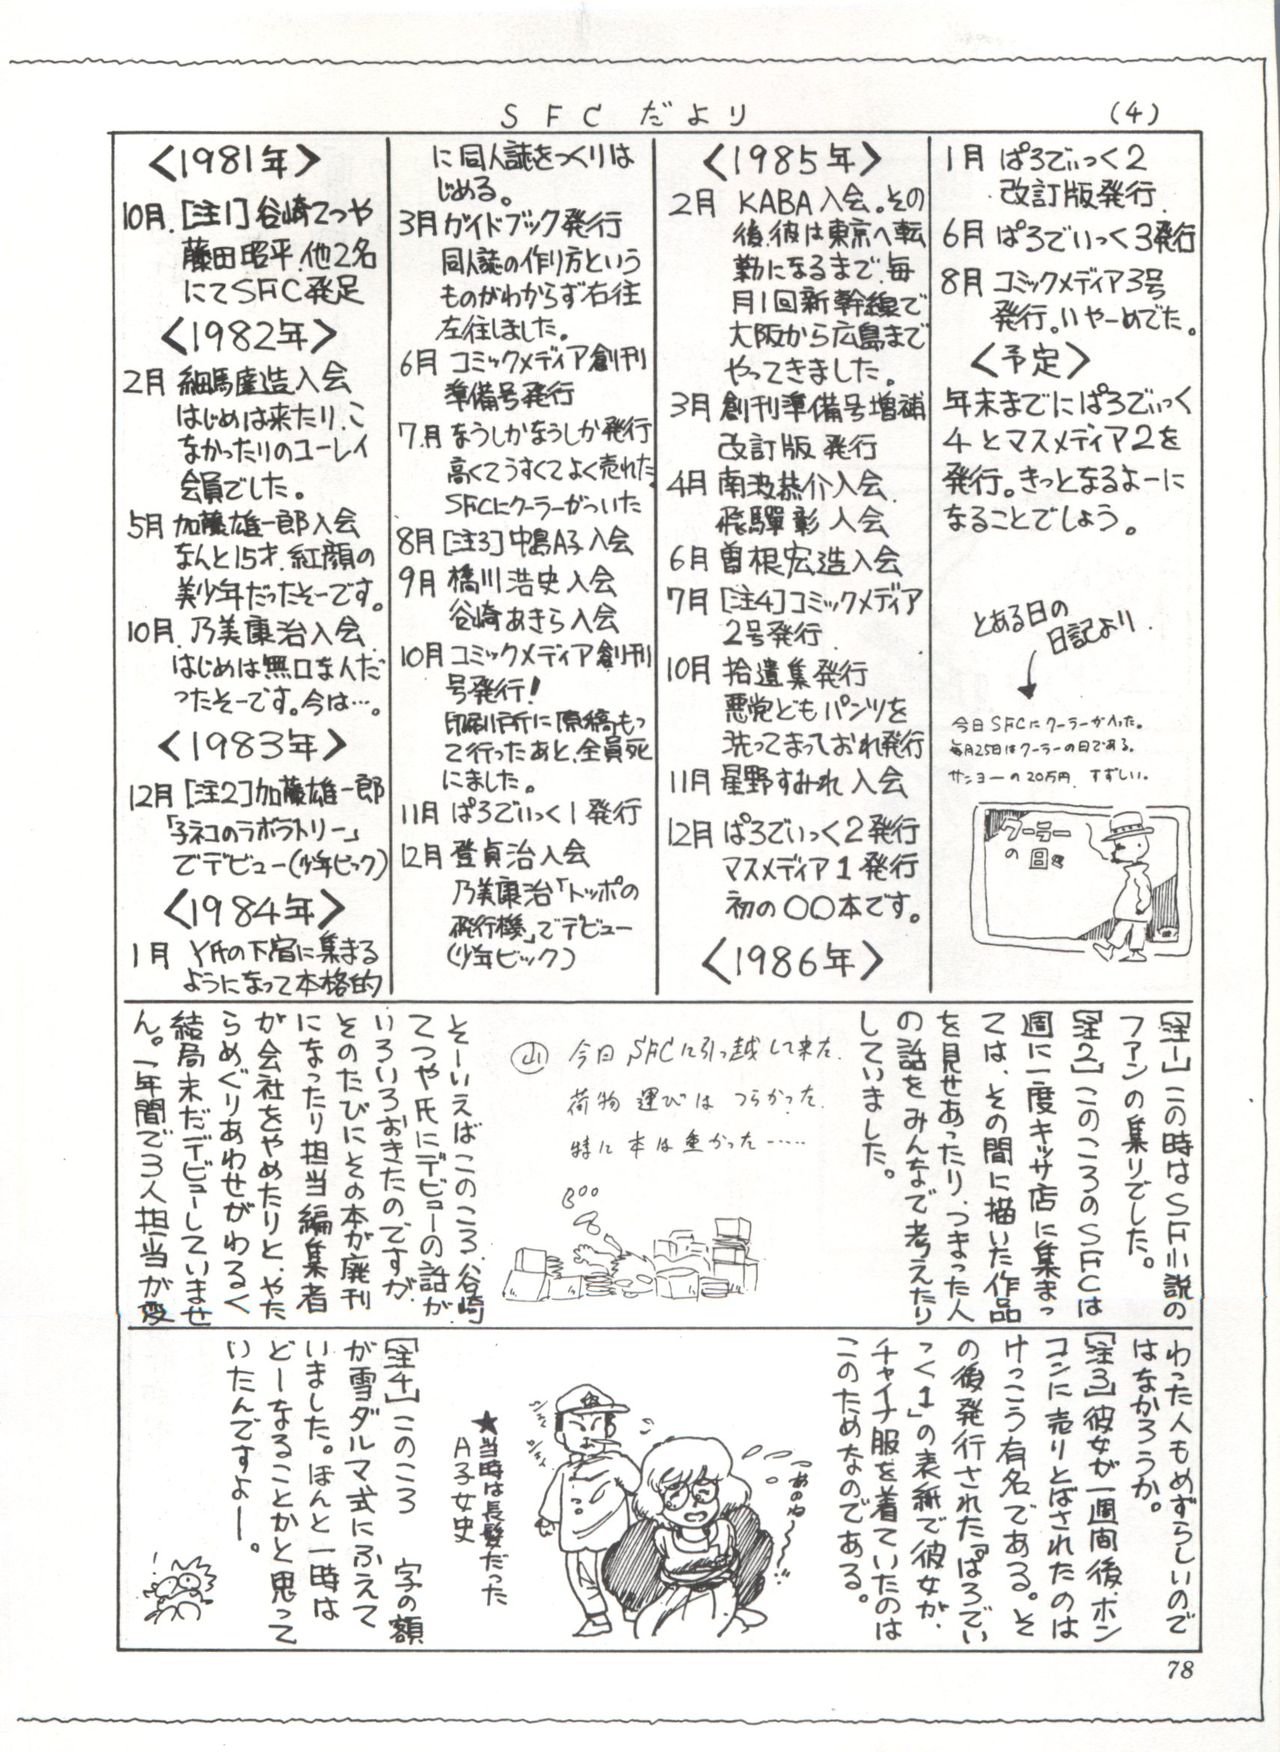 SFCだより
(4)
〈1981年〉
10月 [注1]谷崎てつや
藤田昭平、他2名
にてSFC発足
〈1982年〉
2月 細馬産造入会
はじめは来たり、こ
なかったりのユーレイ
会員でした。
5月 加藤雄一郎入会
なんと15才、紅顔の
美少年だったそーです。
10月 乃美康治入会
はじめは無口な人だ
ったそーです。今は…。
〈1983年〉
12月 [注2]加藤雄一郎
「子ネコのラボラトリー」
でデビュー(少年ビック)
〈1984年〉
1月 Y氏の下宿に集まる
ようになって本格的
に同人誌をつくりは
じめる。
3月 ガイドブック発行
同人誌の作り方という
ものがわからず右往
左往しました。
6月 コミックメディア創刊
準備号発行
7月 なうしかなうしか発行
高くてうすくてよく売れた。
SFCにクーラーがついた
8月 [注3]中島A子入会
9月 橋川浩史入会
谷崎あきら入会
10月 コミックメディア創刊
号発行!
印刷所に原稿もっ
て行ったあと、全員死
にました。
11月 ぱろでぃっく1発行
12月 登貞治入会
乃美康治「トッポの
飛行機」でデビュー
(少年ビック)
〈1985年〉
2月 KABA入会。その
後、彼は東京へ転
勤になるまで、毎
月1回新幹線で
大阪から広島まで
やってきました。
3月 創刊準備号増補
改訂版発行
4月 南波恭介入会
飛騨彰入会
6月 曽根宏造入会
7月 [注4]コミックメディア
2号発行
10月 拾遺集発行
悪党どもパンツを
洗ってまっておれ発行
11月 星野すみれ入会
12月 ぱろでぃっく2発行
マスメディア1発行
初の○○本です。
〈1986年〉
1月 ぱろでぃっく2
改訂版発行
6月 ぱろでぃっく3発行
8月 コミックメディア3号
発行。いやーめでた。
〈予定〉
年末までにぱろでぃっく
4とマスメディア2を
発行。きっとなるよーに
なることでしょう。
とある日の
日記より
今日SFCにクーラーが入った。
毎月25日はクーラーの日である。
サンヨーの20万円 すずしい。
クーラー
の日々
[注1]この時はSF小説の
ファンの集りでした。
[注2]このころのSFCは
週に一度キッサ店に集まっ
ては、その間に描いた作品
を見せあったり、つまった人
の話をみんなで考えたり
していました。
山 今日SFCに引っ越して来た。
荷物運びはつらかった
特に本は重かった……
そーいえばこのころ、谷崎
てつや氏にデビューの話が、
いろいろおきたのですが、
そのたびにその本が廃刊
になったり担当編集者
が会社をやめたりと、やた
らめぐりあわせがわるく
結局未だデビューしていませ
ん。一年間で3人担当が変
わった人もめずらしいので
はなかろうか。
[注3]彼女が一週間後、ポン
コンに売りとばされたのは
けっこう有名である。そ
の後発行された『ぱろでぃ
っく1』の表紙で彼女が、
チャイナ服を着ていたのは
このためなのである。
あのね〜
★当時は長髪だった
A子女史
[注4]このころ 字の額
が雪ダルマ式にふえて
いました。ほんと一時は
どーなることかと思って
いたんですよー。
78